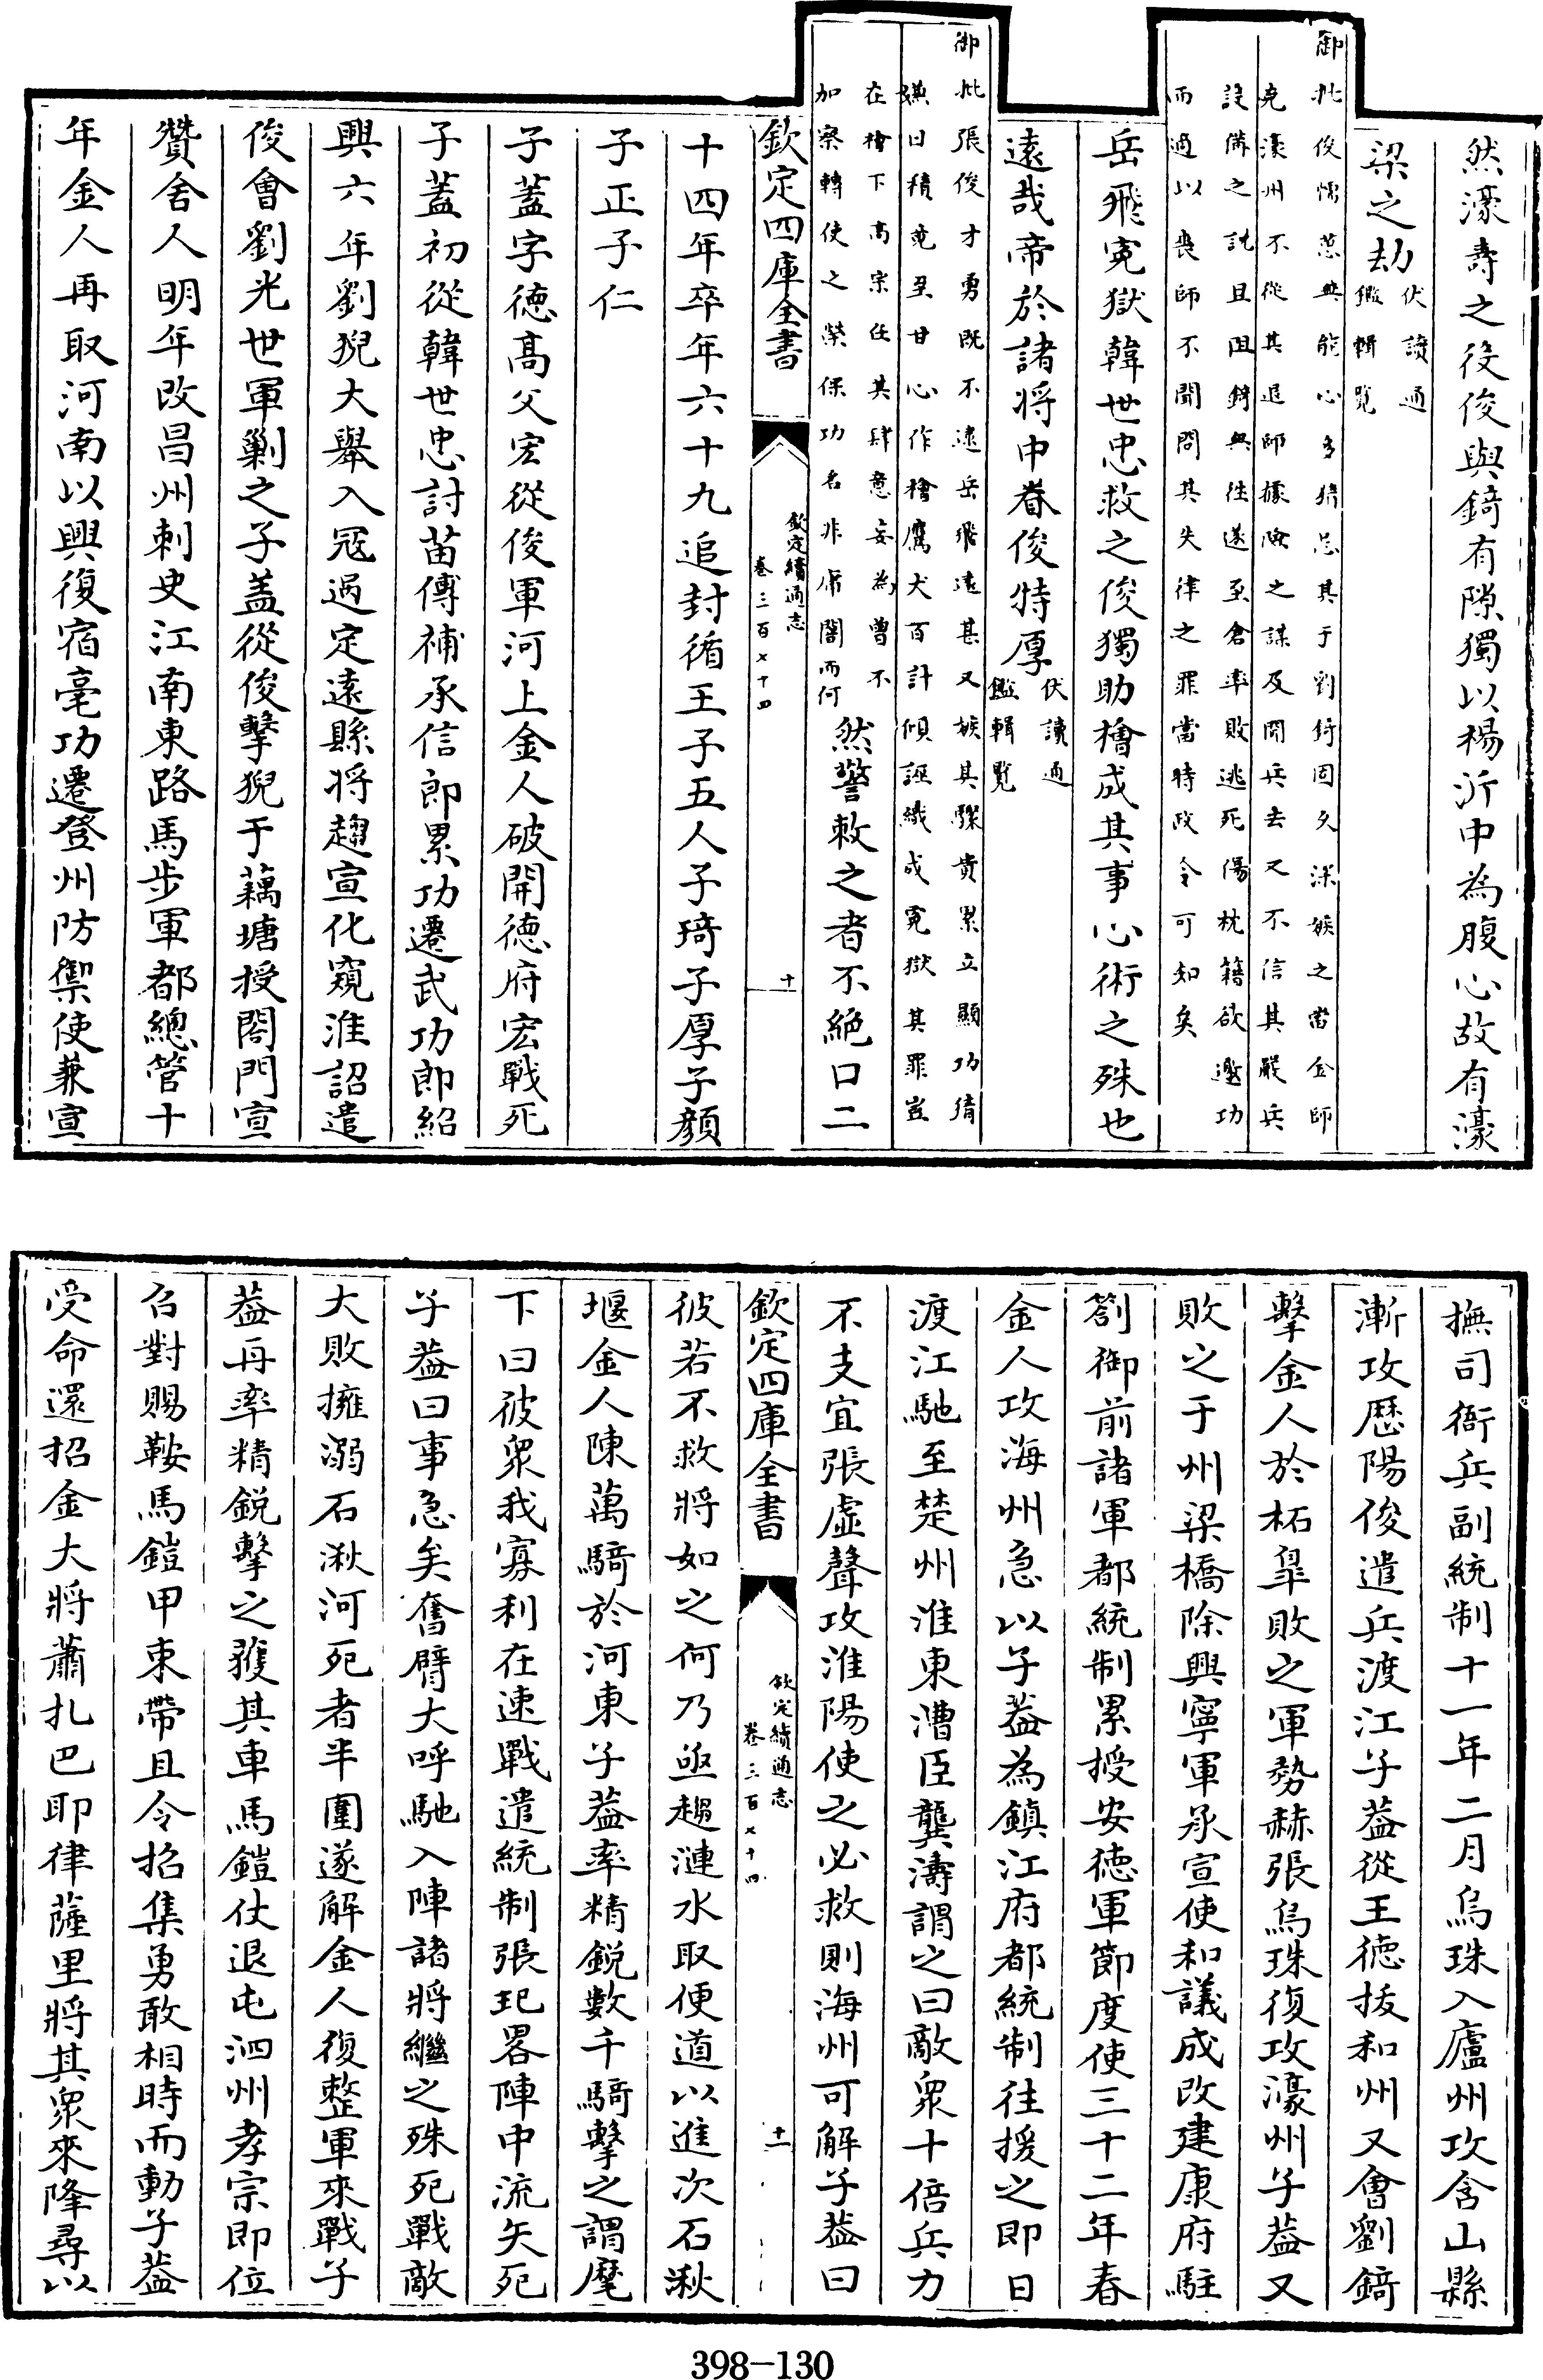 然濠壽之役俊與錡有隙獨以楊沂中為腹心故有濠
梁之劫
伏讀通
鑑輯覽
御批俊懦怯無能心多猜忌其于劉錡固久深嫉之當金師
克濠州不從其退師據險之謀及聞兵去又不信其嚴兵
設備之說且阻錡無往遂至倉率敗逃死傷枕籍欲邀功
而適以喪師不聞問其失律之罪當時政令可知矣
岳飛寃獄韓世忠救之俊獨助檜成其事心術之殊也
遠哉帝於諸将中眷俊特厚
伏讀通
鑑輯覽
御批張俊才勇既不逮岳飛遠甚又嫉其驟貴累立顯功猜
嫌日積竟至甘心作檜鷹犬百計傾誣織成寃獄其罪豈
在檜下高宗任其肆意妄為曾不
加察轉使之榮保功名非庸闇而何
然警敕之者不絶口二
欽定四庫全書
欽定續通志
卷三百七十四
十
十四年卒年六十九追封循王子五人子琦子厚子顔
子正子仁
子蓋字德髙父宏從俊軍河上金人破開德府宏戰死
子蓋初從韓世忠討苗傅補承信郎累功遷武功郎紹
興六年劉猊大舉入冦過定遠縣将趨宣化窺淮詔遣
俊會劉光世軍剿之子蓋從俊擊猊于藕塘授閤門宣
贊舍人明年改昌州刺史江南東路馬步軍都總管十
年金人再取河南以興復宿亳功遷登州防禦使兼宣
撫司衙兵副統制十一年二月烏珠入廬州攻含山縣
漸攻厯陽俊遣兵渡江子葢從王德拔和州又會劉錡
擊金人於柘臯敗之軍勢赫張烏珠復攻濠州子葢又
敗之于州梁橋除興寧軍承宣使和議成改建康府駐
劄御前諸軍都統制累授安德軍節度使三十二年春
金人攻海州急以子葢為鎮江府都統制往援之即日
渡江馳至楚州淮東漕臣龔濤謂之曰敵衆十倍兵力
不支宜張虛聲攻淮陽使之必救則海州可解子葢曰
欽定四庫全書
欽定續通志
卷三百七十四
十一
彼若不救將如之何乃亟趨漣水取便道以進次石湫
堰金人陳萬騎於河東子葢率精鋭數千騎擊之謂麾
下曰彼衆我寡利在速戰遣統制張玘畧陣中流矢死
子葢曰事急矣奮臂大呼馳入陣諸將繼之殊死戰敵
大敗擁溺石湫河死者半圍遂解金人復整軍來戰子
葢再率精鋭擊之獲其車馬鎧仗退屯泗州孝宗即位
召對賜鞍馬鎧甲束帶且令招集勇敢相時而動子葢
受命還招金大將蕭扎巴耶律薩里將其衆來降尋以
398-130